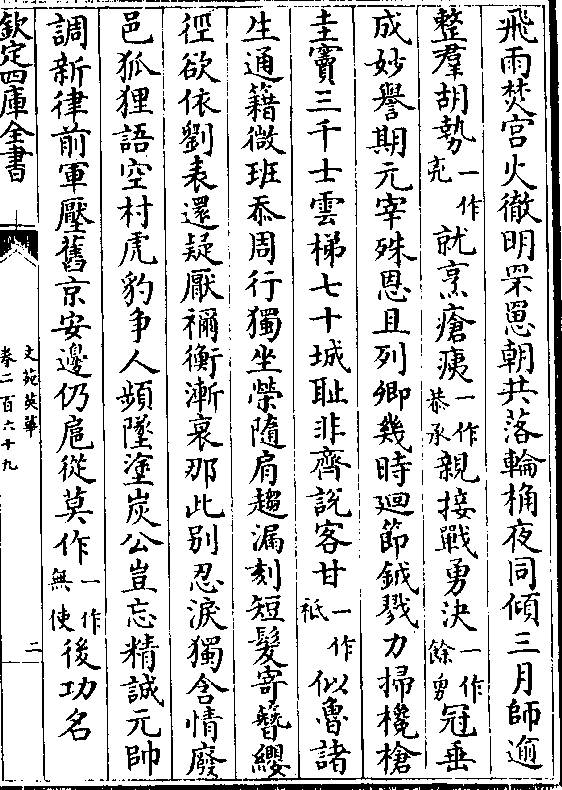 飛雨焚宫火徹明罘罳朝共落輪桷夜同傾三月師逾
整羣胡勢一作亮就烹瘡痍一作恭承親接戰勇決一作餘勇冠垂
成妙譽期元宰殊恩且列卿幾時廻節鉞戮力掃欃槍
圭竇三千士雲梯七十城耻非齊說客甘一作祗似魯諸
生通籍微班忝周行獨坐榮隨肩趨漏刻短髮寄簪纓
徑欲依劉表還疑厭禰衡漸衰那此别忍淚獨含情廢
邑狐狸語空村虎豹争人頻墜塗炭公豈忘精誠元帥
調新律前軍壓舊京安邊仍扈從莫作一作無使後功名
欽定四庫全書
文苑英華
卷二百六十九
二